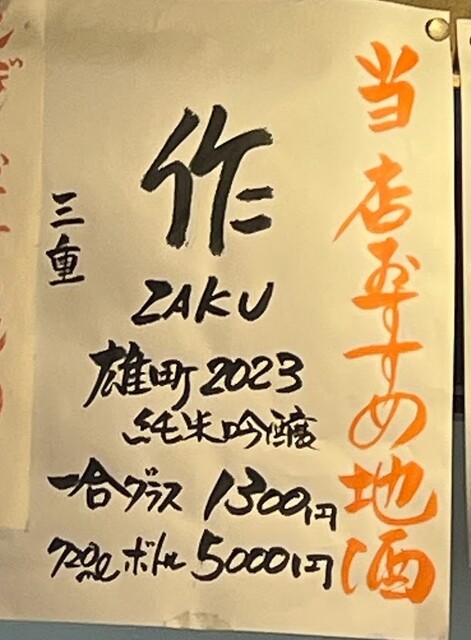 当店おすすめ地酒
作
三重
ZAKU
雄町2023
純米吟醸
一合グラス 1300円
720mlボトル 5000円